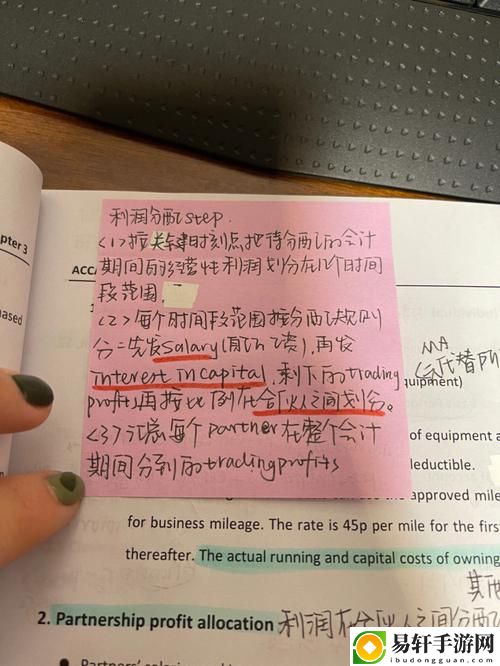 利润分配step.
<1>按关键时刻点把待分配的会计
期间的经营性利润划分在几个时间
段范围
<2>每个时间段范围按分配规则
分=先发salary(员工工资),再发
interest in capital,剩下的trading
profits再按比例在合伙人之间划分。
<3>汇总每个partner在整个会计
期间分到的trading profits
pter 3
ACCA
based
MA
uipment)
of equipment a
deductible.
approved mile
for business mileage. The rate is 45p per mile for the first
thereafter. The actual running and capital costs of owning
2. Partnership profit allocation 利润在合伙人之间分配
Partners'
易轩手游网
ibudongguan.com